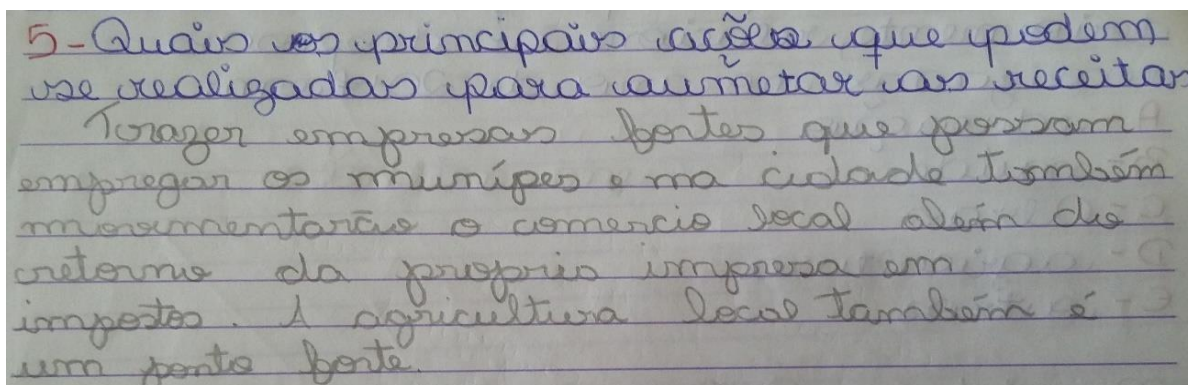 5-Quais as principais ações que podem
se realizadas para aumẽtar as receitas
Trazer empresas fortes que possam
empregar os munípes e na cidade também
movimentarão o comercio local além do
retorno da proprio impresa em
impostos. A agricultura local também é
um ponto forte.